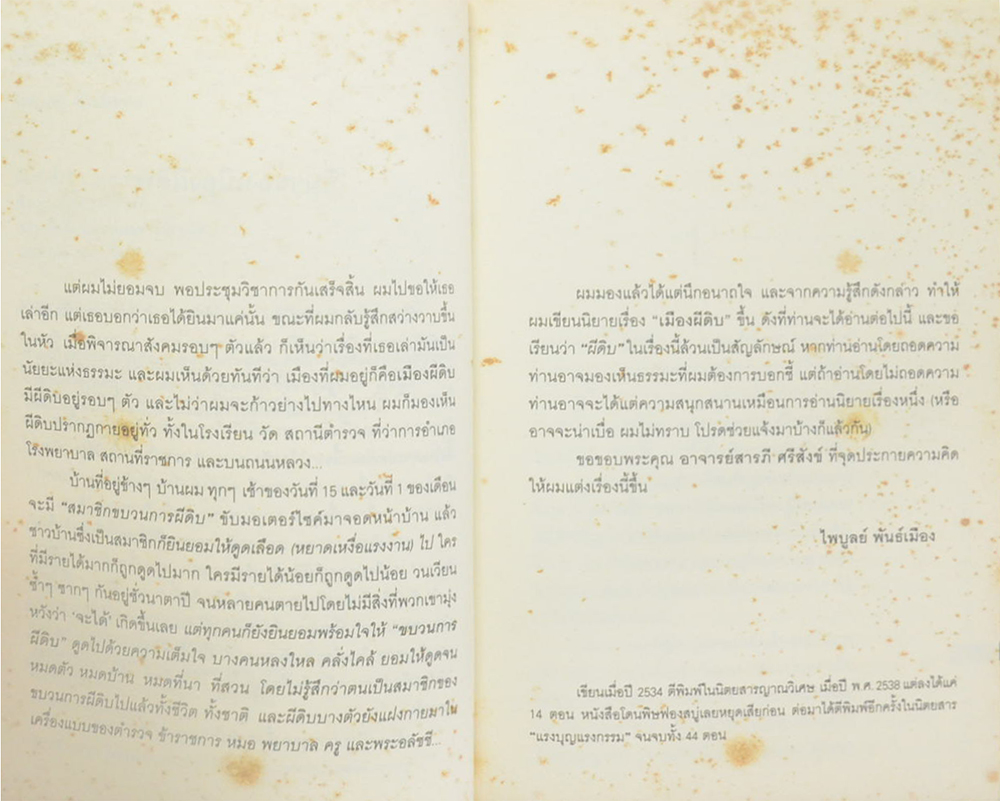 แต่ผมไม่ยอมจบ พอประชุมวิชาการกันเสร็จสิ้น ผมไปขอให้เธอ
เล่าอีก แต่เธอบอกว่าเธอได้ยินมาแค่นั้น ขณะที่ผมกลับรู้สึกสว่างวาบขึ้น
ในหัว เมื่อพิจารณาสังคมรอบๆ ตัวแล้ว ก็เห็นว่าเรื่องที่เธอเล่ามันเป็น
นัยยะแห่งธรรมะ และผมเห็นด้วยทันทีว่า เมืองที่ผมอยู่ก็คือเมืองผีดิบ
มีผีดิบอยู่รอบๆ ตัว และไม่ว่าผมจะก้าวย่างไปทางไหน ผมก็มองเห็น
ผีดิบปรากฏกายอยู่ทั่ว ทั้งในโรงเรียน วัด สถานีตำรวจ ที่ว่าการอำเภอ
โรงพยาบาล สถานที่ราชการ และบนถนนหลวง...
บ้านที่อยู่ข้างๆ บ้านผม ทุกๆ เช้าของวันที่ 15 และวันที่ 1 ของเดือน
จะมี “สมาชิกขบวนการผีดิบ” ขับมอเตอร์ไซค์มาจอดหน้าบ้าน แล้ว
ชาวบ้านซึ่งเป็นสมาชิกก็ยินยอมให้ดูดเลือด (หยาดเหงื่อแรงงาน) ไป ใคร
ที่มีรายได้มากก็ถูกดูดไปมาก ใครมีรายได้น้อยก็ถูกดูดไปน้อย วนเวียน
ซ้ำๆ ซากๆ กันอยู่ชั่วนาตาปี จนหลายคนตายไปโดยไม่มีสิ่งที่พวกเขามุ่ง
หวังว่า ‘จะได้’ เกิดขึ้นเลย แต่ทุกคนก็ยังยินยอมพร้อมใจให้ “ขบวนการ
ผีดิบ” ดูดไปด้วยความเต็มใจ บางคนหลงใหล คลั่งไคล้ ยอมให้ดูดจน
หมดตัว หมดบ้าน หมดที่นา ที่สวน โดยไม่รู้สึกว่าตนเป็นสมาชิกของ
ขบวนการผีดิบไปแล้วทั้งชีวิต ทั้งชาติ และผีดิบบางตัวยังแฝงกายมาใน
เครื่องแบบของตำรวจ ข้าราชการ หมอ พยาบาล ครู และพระอลัชชี...
ผมมองแล้วได้แต่นึกอนาถใจ และจากความรู้สึกดังกล่าว ทำให้
ผมเขียนนิยายเรื่อง “เมืองผีดิบ” ขึ้น ดังที่ท่านจะได้อ่านต่อไปนี้ และขอ
เรียนว่า “ผีดิบ” ในเรื่องนี้ล้วนเป็นสัญลักษณ์ หากท่านอ่านโดยถอดความ
ท่านอาจมองเห็นธรรมะที่ผมต้องการบอกชี้ แต่ถ้าอ่านโดยไม่ถอดความ
ท่านอาจจะได้แต่ความสนุกสนานเหมือนการอ่านนิยายเรื่องหนึ่ง (หรือ
อาจจะน่าเบื่อ ผมไม่ทราบ โปรดช่วยแจ้งมาบ้างก็แล้วกัน)
ขอขอบพระคุณ อาจารย์สารภี ศรีสังข์ ที่จุดประกายความคิด
ให้ผมแต่งเรื่องนี้ขึ้น
ไพบูลย์ พันธ์เมือง
เขียนเมื่อปี 2534 ตีพิมพ์ในนิตยสารญาณวิเศษ เมื่อปี พ.ศ. 2538 แต่ลงได้แค่
14 ตอน หนังสือโดนพิษฟองสบู่เลยหยุดเสียก่อน ต่อมาได้ตีพิมพ์อีกครั้งในนิตยสาร
“แรงบุญแรงกรรม” จนจบทั้ง 44 ตอน